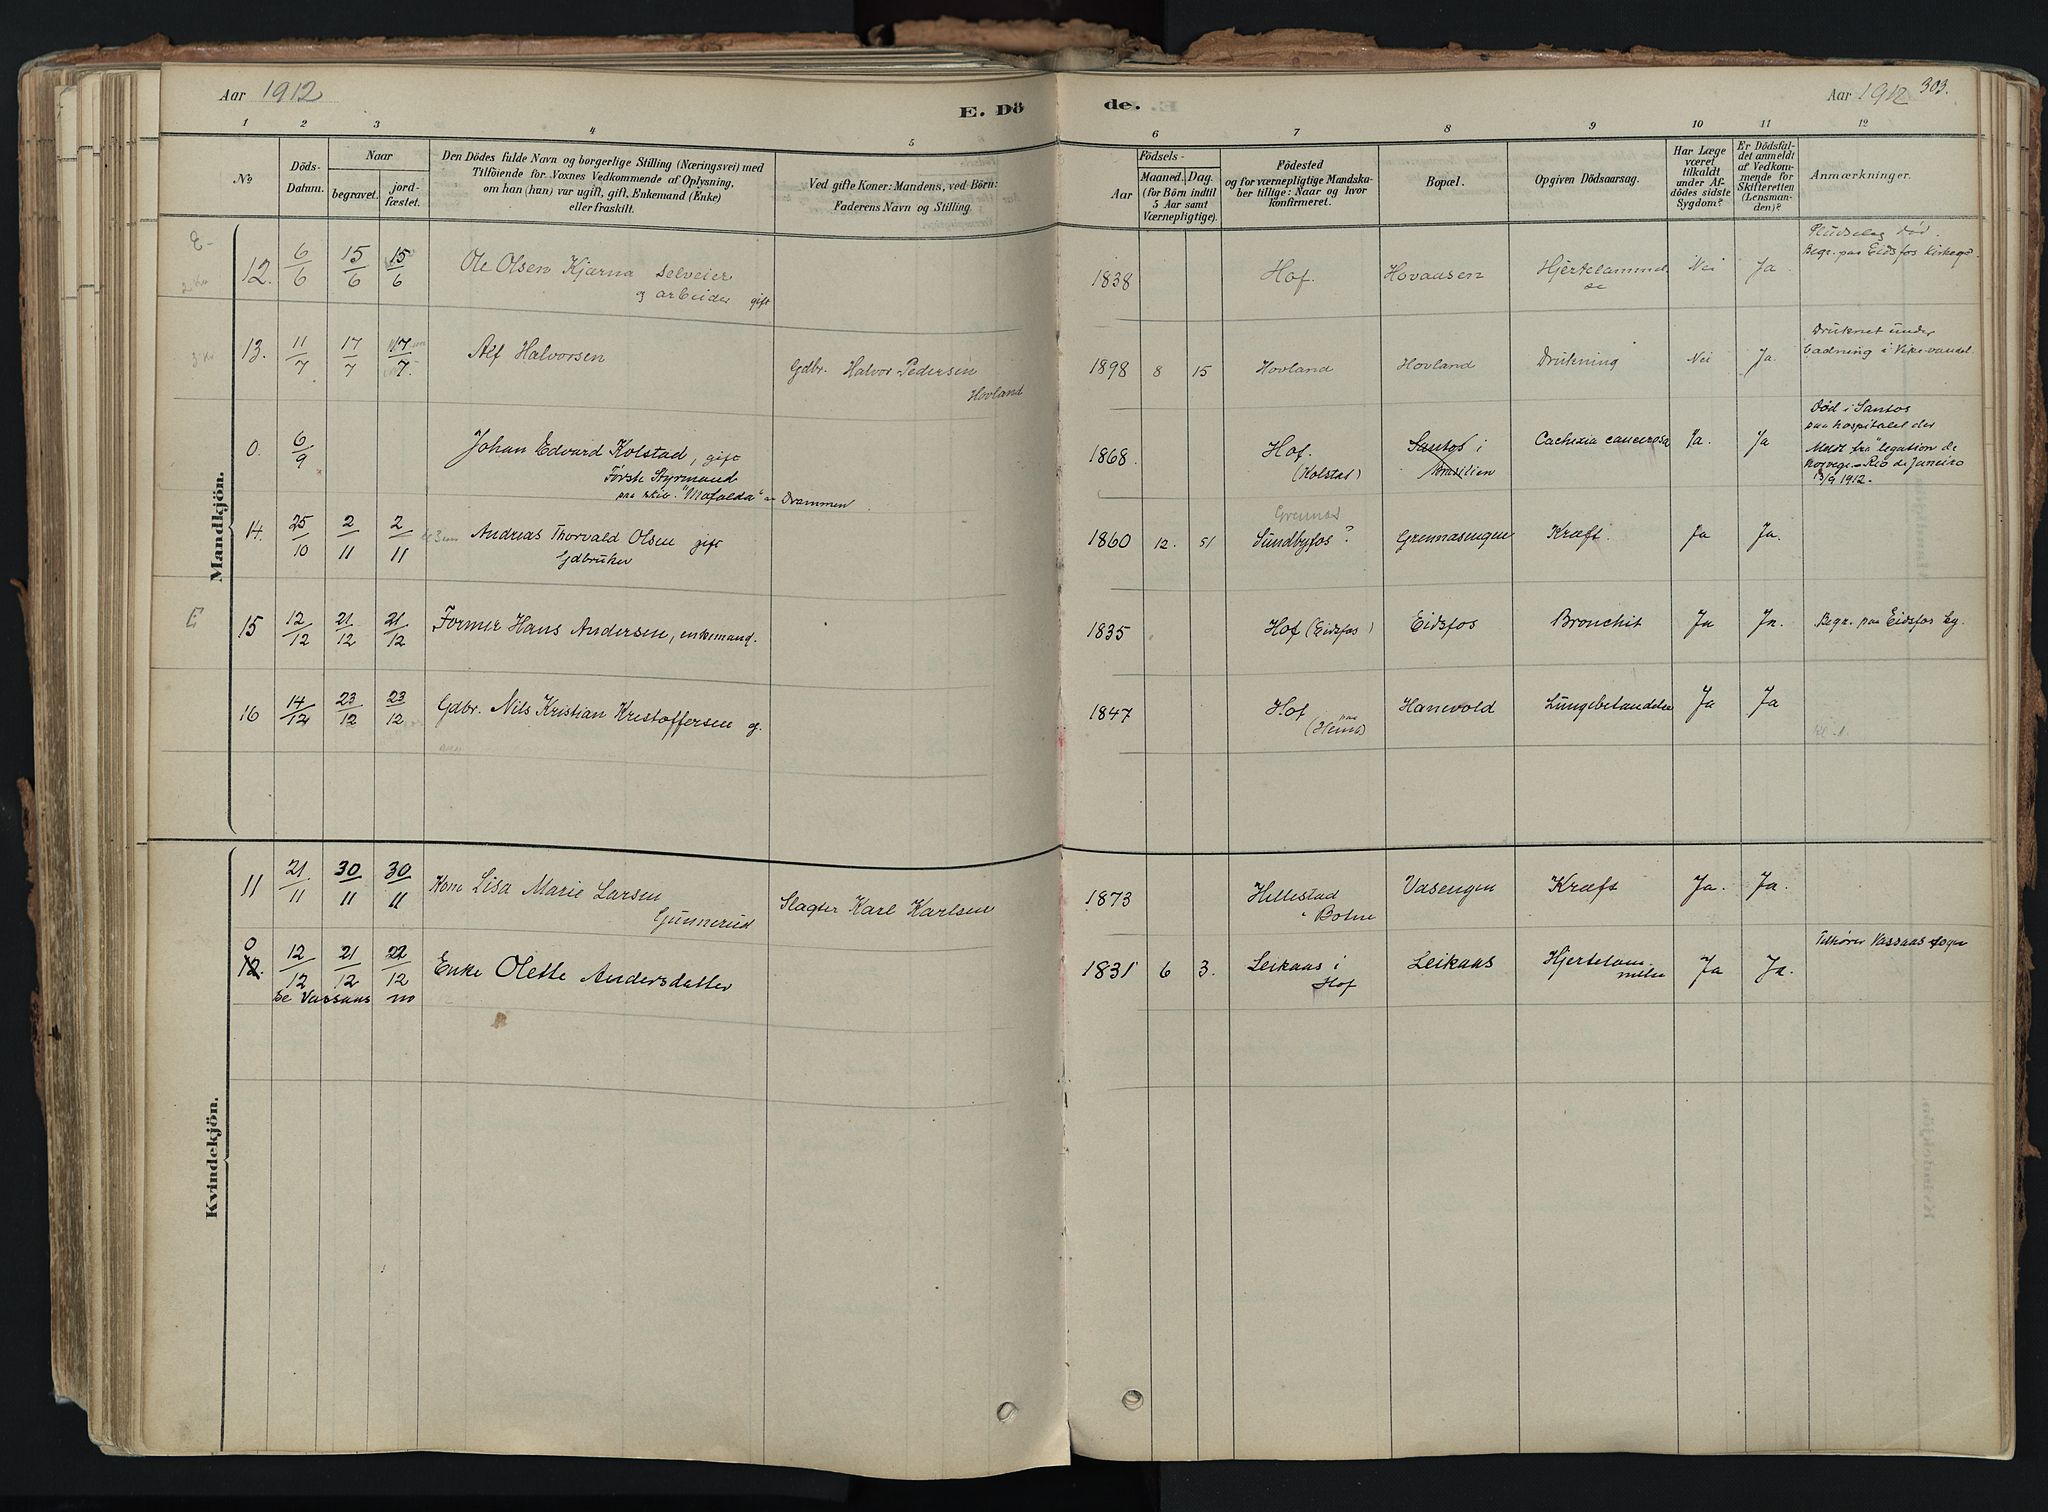 Aar 1912
E. Dö
de.
Aar 1912 303.
1 2 3 4 5 6 7 8 9 10 11 12
No
Döds-
Datum.
Naar
begravet.
jord-
fæstet.
Den Dödes fulde Navn og borgerlige Stilling (Næringsvei) med
Tilföiende for Voxnes Vedkommende af Oplysning,
om han (hun) var ugift, gift, Enkemand (Enke)
eller fraskilt.
Ved gifte Koner: Mandens, ved Börn:
Faderens Navn og Stilling.
Födsels-
Aar
Maaned. Dag.
(for Börn indtil
5 Aar samt
Værnepligtige).
Födested
og for værnepligtige Mandska-
ber tillige: Naar og hvor
konfirmeret.
Bopæl.
Opgiven Dödsaarsag.
Har Læge
været
tilkaldt
under Af-
dödes sidste
Sygdom?
Er Dödsfal-
det anmeldt
af Vedkom-
mende for
Skifteretten
(Lensman-
den)?
Anmærkninger.
Mandkjön.
E-
12. 6/6 15/6 15/6 Ole Olsen Kjærna Selveier
og arbeider gift
1838 Hof. Hovaasen Hjertelammel
se
Nei Ja
Pludselig død.
Begr. paa Eidsfos Kirkeg.
13. 11/7 17/7 17/7 Alf Halvorsen
Gdbr. Halvor Pedersen
Hovland
1898 8 15 Hovland Hovland Drukning Nei Ja.
Druknet under
badning i Vike-vandet
0. 6/9 Johan Edvard Kolstad, gift
Første Styrmand
paa skib. "Mafalda" – Drammen.
1868. Hof.
(Kolstad)
Santos i
Brasilien
Cachexia cancerosa Ja. Ja
Død i Santos
paa hospitalet der
Meldt fra "legation de
Norvege – Rio de Janeiro
13/9 1912.
14. 25/10 2/11 2/11 Andreas Thorvald Olsen gift
Gdbruker
1860 12. 51
Grennes
Sundbyfos? Grennasengen Kræft. Ja Ja.
E
15 12/12 21/12 21/12 Former Hans Andersen, enkemand.
1835 Hof (Eidsfos) Eidsfos Bronchit Ja Ja. Begr. paa Eidsfos kg.
16 14/12 23/12 23/12 Gdbr. Nils Kristian Kristoffersen g.
1847 Hof Hanevold Lungebetændelse Ja Ja
Kvindekjön.
11 21/11 30/11 30/11 Kone Lisa Marie Larsen
Gunnerud
Slagter Karl Karlsen
1873 Hillestad
i Botne
Vasengen Kræft Ja. Ja.
0
12. 12/12 21/12 22/12 Enke Olette Andersdatter
se Vassaas no
1831 6 3. Leikaas i
Hof
Leikaas Hjertelam-
melse
Ja Ja.
Tilhører Vassaas sogn